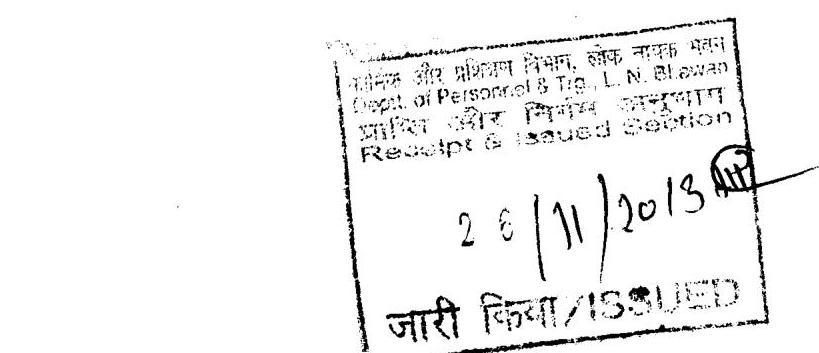 कार्मिक और प्रशिक्षण विभाग, लोक नायक भवन
Deptt. of Personnel & Trg., L. N. Bhawan
प्राप्ति और निर्गम अनुभाग
Receipt & Issued Section
26/11/2013
जारी किया/ISSUED